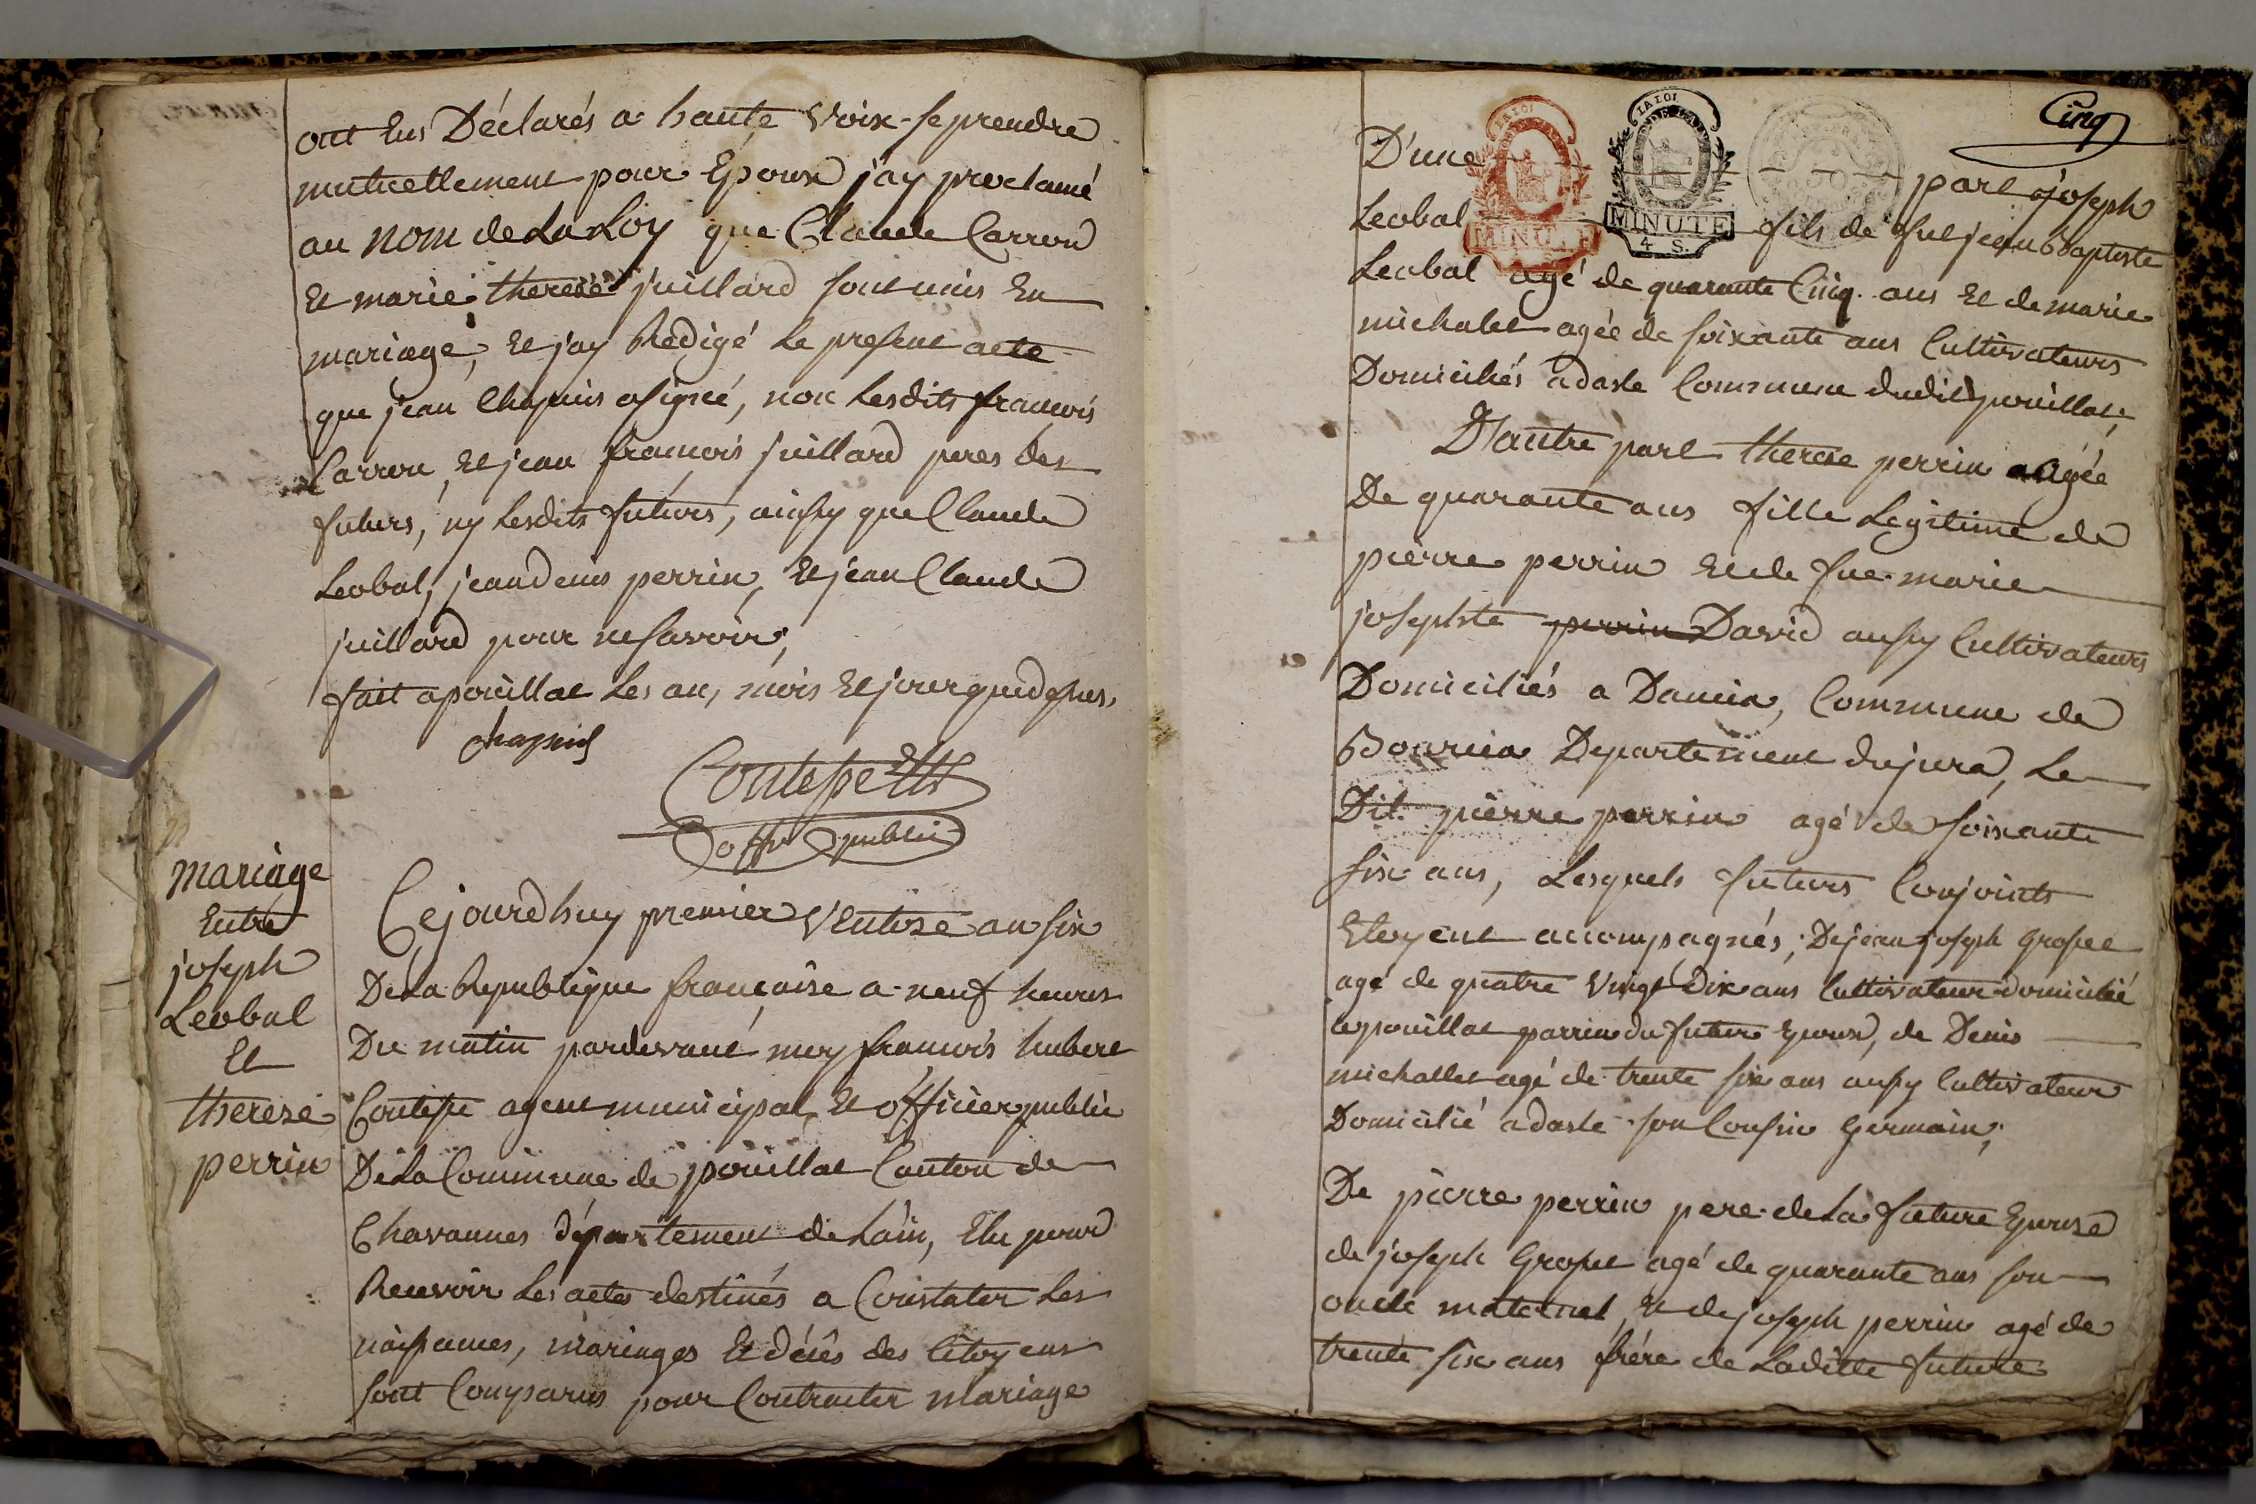 ont Eus Déclarés a haute Voix se prendre
mutuellement pour Epoux jay proclamé
au nom de La Loy que Claude Carron
Et marie therese juillard sont unis En
mariage, Et jay Redigé Le present acte
que jean Chapuis a signé, non Lesdits francois
Carron, Et jean francois juillard peres des
futurs, ny Lesdits futurs, ainsy que Claude
Leobal, jean denis perrin, Et jean Claude
juillard pour ne savoir;
fait a pouillat Les an, mois Et jour que dessus,
chapuis
Contesse
offr public
mariage
Entre
joseph
Leobal
Et
therese
perrin
Cejourdhuy premier Ventose an six
De La Republique francaise a neuf heures
Du matin pardevant moy francois hubert
Contesse agent municipal, Et officier public
De La Commune de pouillat Canton de
Chavannes département de Lain, Elu pour
Recevoir Les actes destinés a Constater Les
naissances, mariages Et décês des Citoyens
sont Comparus pour Contracter mariage
Cinq
LA LOI
LA LOI
MINUTE
MINUTE
4 S.
D'une part joseph
Leobal fils de fut jean Baptiste
Leobal agé de quarante Cinq ans Et de marie
michalet agée de soixante ans Cultivateurs
Domiciliés a dasle Commune dudit pouillat,
D'autre part therese perrin agée
De quarante ans fille Legitime de
pierre perrin Et de fue marie
josephte perrin David aussy Cultivateurs
Domiciliés a Dancia, Commune de
Bourcia Departement du jura, Le
Dit pierre perrin agé de soixante
six ans, Lesquels futurs Conjoints
Etoyent accompagnés; De jean joseph Grosset
agé de quatre Vingt Dix ans Cultivateur domicilié
a pouillat parrin du futur Epoux, de Denis
michallet agé de trente six ans aussy Cultivateur
Domicilié a dasle son Cousin Germain;
De pierre perrin pere de La future Epouse
de joseph Grosset agé de quarante ans son
oncle maternel, Et de joseph perrin agé de
trente six ans frére de Laditte future